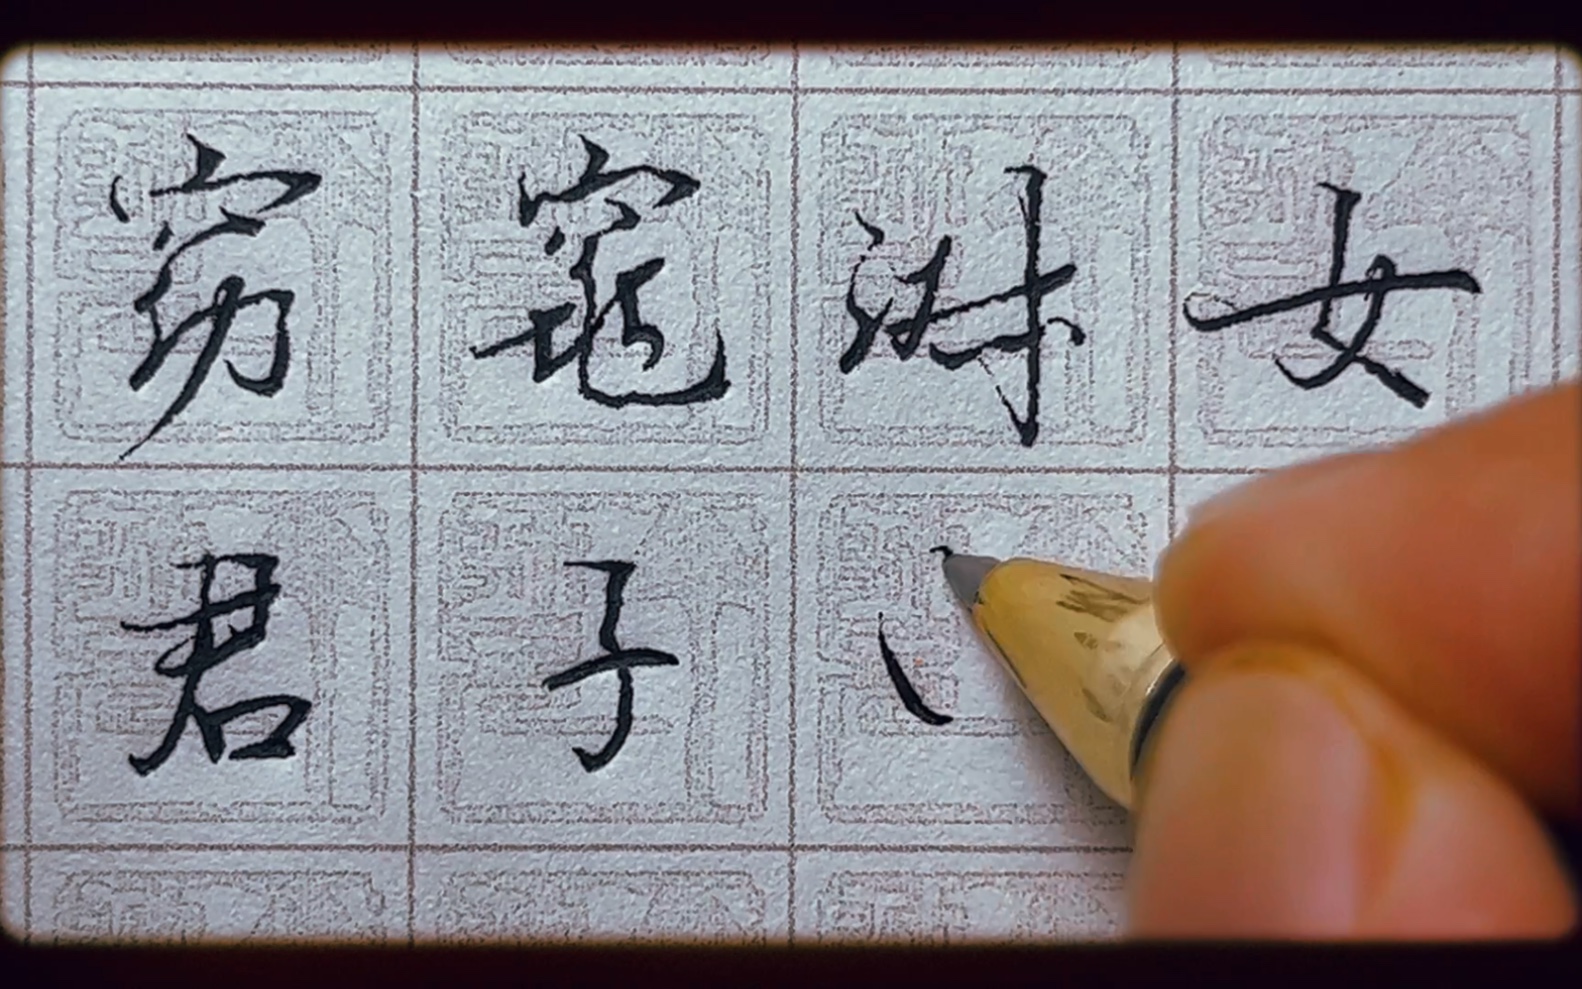 窈窕淑女
君子